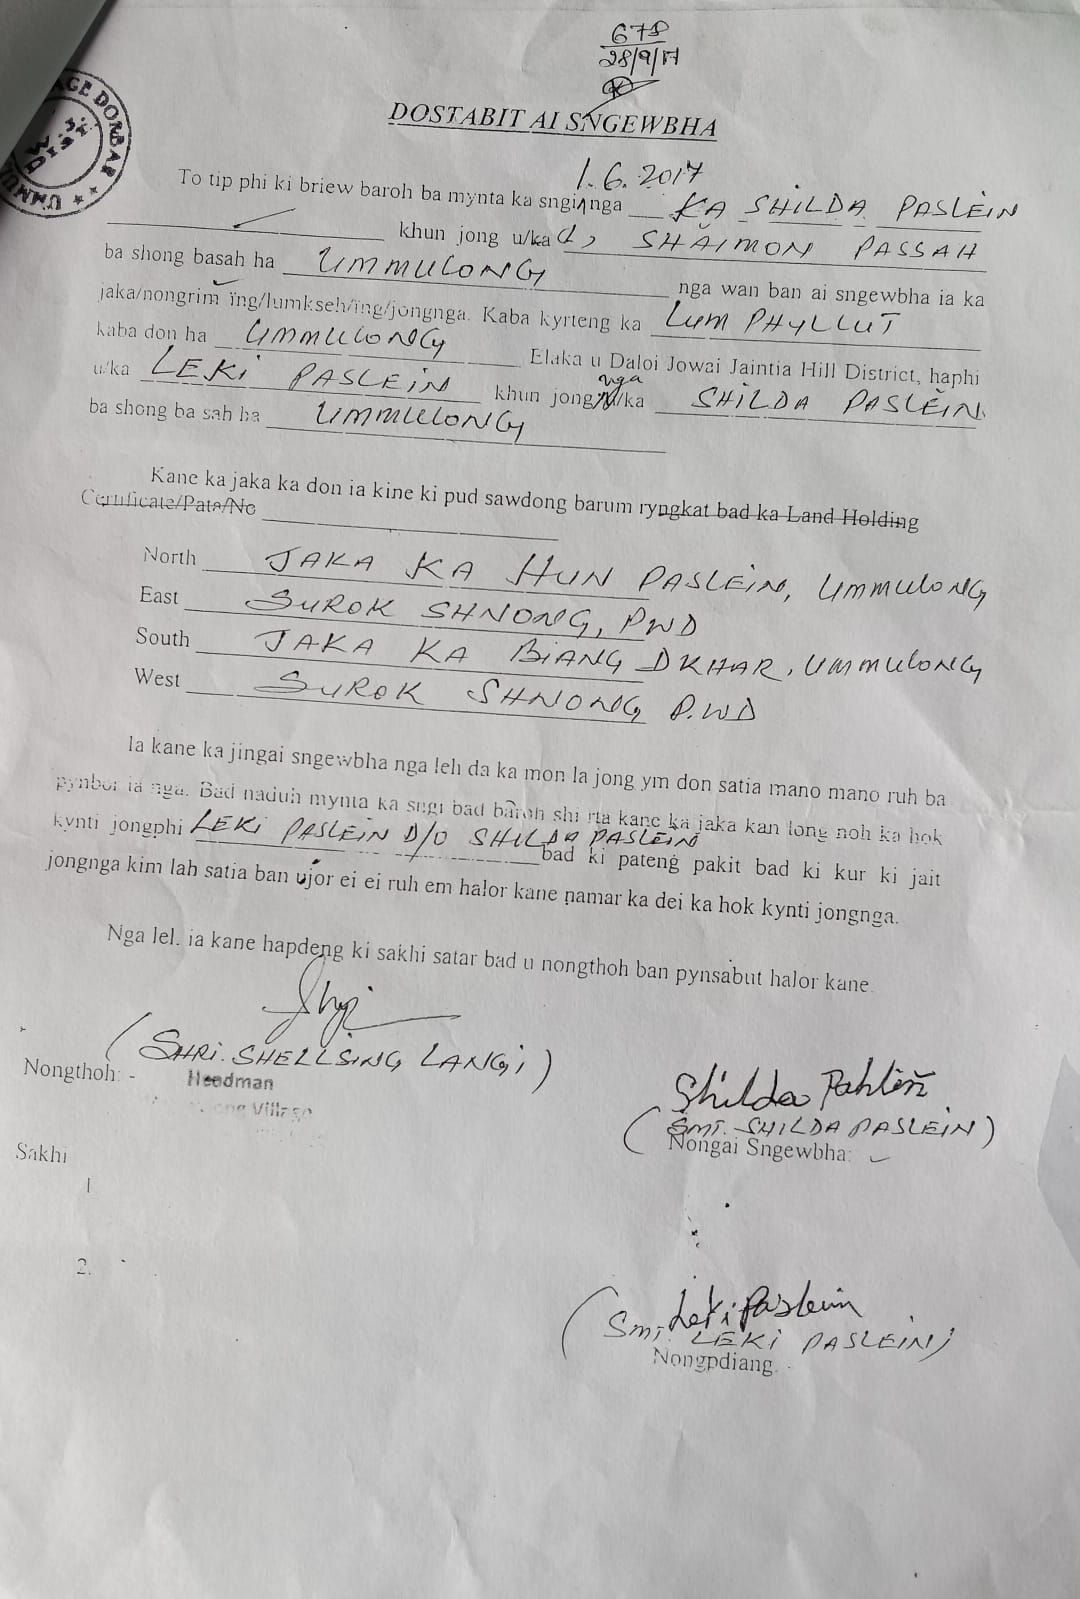 678
28/9/17
DOSTABIT AI SNGEWBHA
VILLAGE DORBAR ★ ★ UMMULONG
W.J.
DIST.
1.6.2017
To tip phi ki briew baroh ba mynta ka sngi nga KA SHILDA PASLEIN
khun jong u/ka SHAIMON PASSAH
ba shong basah ha UMMULONG nga wan ban ai sngewbha ia ka
jaka/nongrim ïng/lumkseh/ïng/jongnga. Kaba kyrteng ka LUM PHYLLUT
kaba don ha UMMULONG Elaka u Daloi Jowai Jaintia Hill District, haphi
u/ka LEKI PASLEIN khun jong nga u/ka SHILDA PASLEIN
ba shong ba sah ha UMMULONG
Kane ka jaka ka don ia kine ki pud sawdong barum ryngkat bad ka Land Holding
Certificate/Pata/No
North JAKA KA HUN PASLEIN, UMMULONG
East SUROK SHNONG, PWD
South JAKA KA BIANG DKHAR, UMMULONG
West SUROK SHNONG P.WD
Ia kane ka jingai sngewbha nga leh da ka mon la jong ym don satia mano mano ruh ba
pynbor ia nga. Bad naduh mynta ka sngi bad baroh shi rta kane ka jaka kan long noh ka hok
kynti jongphi LEKI PASLEIN D/O SHILDA PASLEIN bad ki pateng pakit bad ki kur ki jait
jongnga kim lah satia ban ujor ei ei ruh em halor kane namar ka dei ka hok kynti jongnga.
Nga leh ia kane hapdeng ki sakhi satar bad u nongthoh ban pynsabut halor kane.
(SHRI. SHELLSING LANGI)
Nongthoh: - Headman
Village
Shilda Pahlein
(SMT. SHILDA PASLEIN)
Nongai Sngewbha:
Sakhi
1
2.
Leki Paslein
(Smt. LEKI PASLEIN)
Nongpdiang.